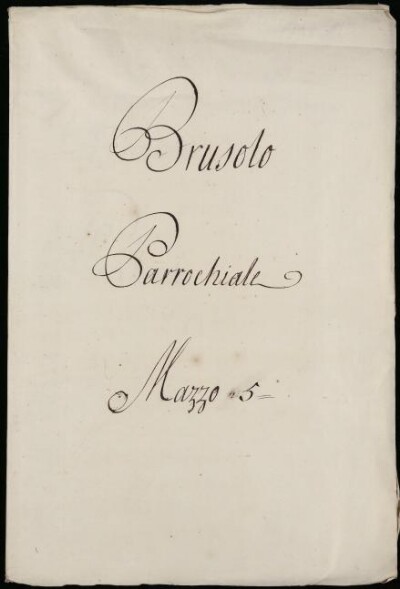 Brusolo
Parrochiale
Mazzo 5=